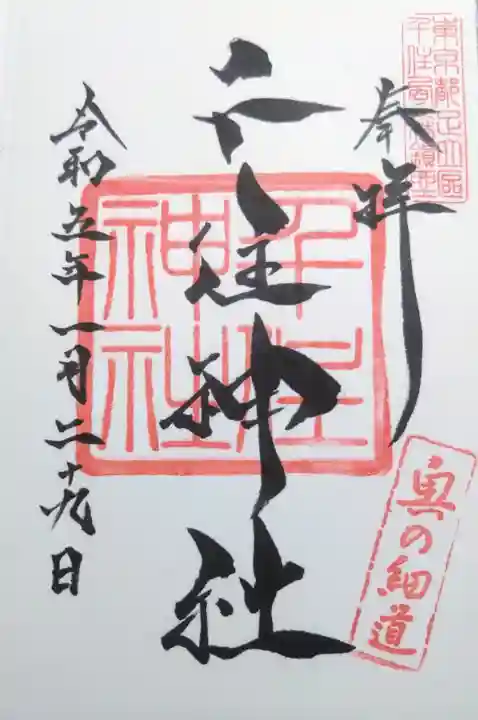 東京都足立區
千住宮元町鎮座
奉拝
千住神社
千住
神社
奥の細道
令和五年一月二十九日